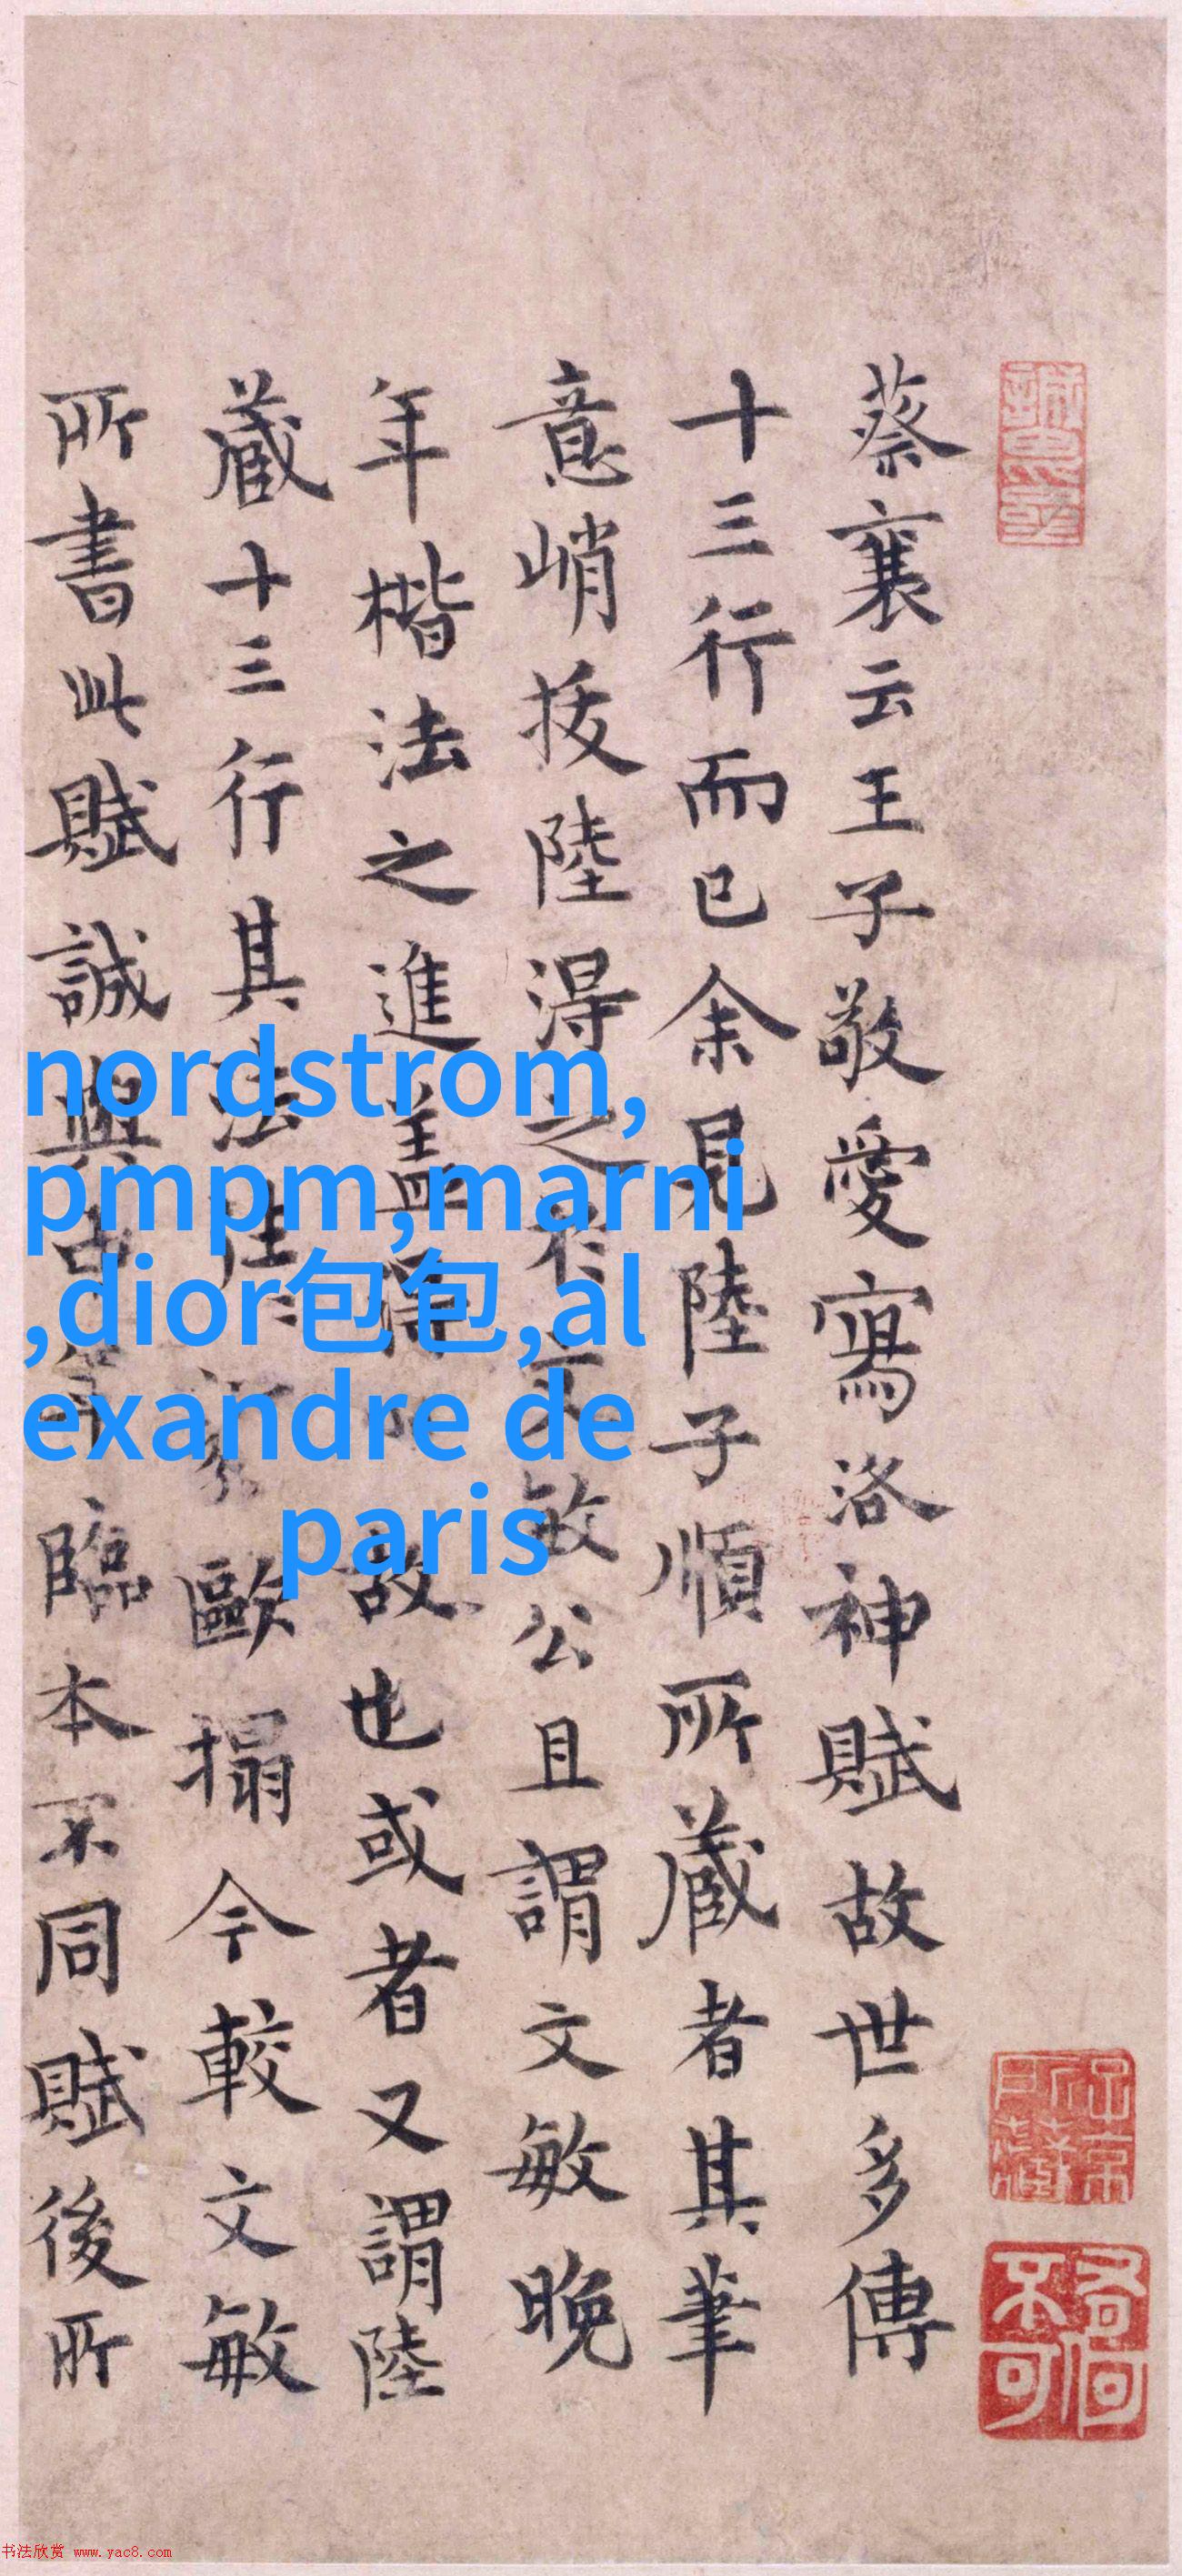 蔡襄云王子敬愛寫洛神賦故世多傳
十三行而已余見陸子順所蔵者其筆
意峭拔陸淂之於文敏公且謂文敏晚
年楷法之進盖淂故也或者又謂陸
蔵十三行其法歐搨今較文敏
所書此賦誠與臨本不同賦後所
nordstrom,
pmpm,marni
,dior包包,al
exandre de
paris
书法欣赏 www.yac8.com